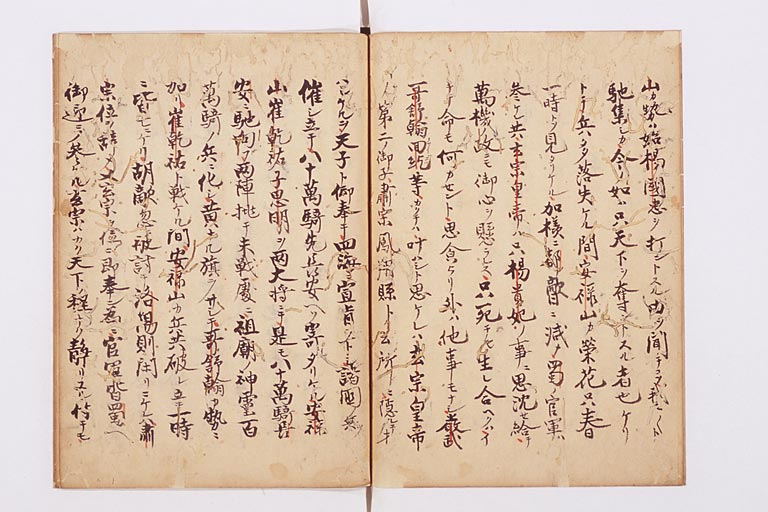 山カ勢ハ始楊國忠ヲ打ントスル由ヲ聞テコソ
馳集シカ今ノ如ハ只天下ヲ奪ントスル者也ケリ
トテ兵多落失ケル間安禄山カ榮花只春
一時トソ見タリケル加様ニ都敵ニ滅ヲ蜀ノ官軍
参ケレ共玄宗皇帝ハ只楊貴妃ノ事ニ思沈セ給テ
萬機ノ政ニモ御心ヲ懸ラレス只死テモ生レ合ヘクハイ
テ命モ何カセント思食ケリ外ハ他事モナシ嚴武
哥舒翰等カクテハ叶ハシト思ケレハ玄宗皇帝
第二御子肅宗鳳翔縣ト云所ニ隱
ケルヲ天子ト御奉テ四海ニ宣旨ヲ下シ諸國ノ兵ヲ
催シ五十八十萬騎先長安ヘソ寄タリケル安禄
山崔乾祐子思明ヲ両大将ニテ是モ八萬騎長
安ニ馳向フ両陣挑テ未戰處ニ祖廟ノ神靈百
萬騎ノ兵ニ化シ黄ナル旗ヲサシテ哥舒翰カ勢ニ
加リ崔乾祐ト戰ケル間安禄山カ兵共破レテ一時
ニ皆亡ニケリ胡敵忽被討テ洛陽則閑リシカハ肅
宗位ヲ辞シ又玄宗ヲ位ニ即奉シ為ニ官軍皆蜀ヘ
御迎ニソ参ケル玄宗ハカク天下ノ程ナク静リヌルニ付テモ